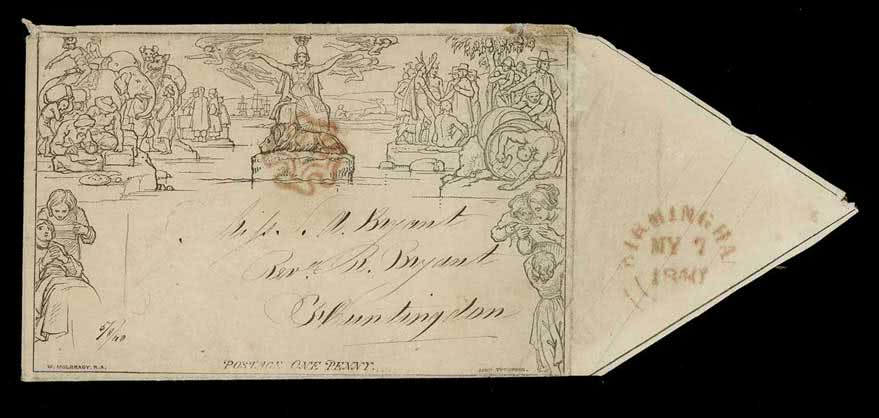 Miss. A. Bryant
Revd. R. Bryant
Huntingdon
5/7/40
POSTAGE ONE PENNY.
W. MULREADY, R.A.
JOHN THOMPSON.
BIRMINGHAM
MY 7
1840